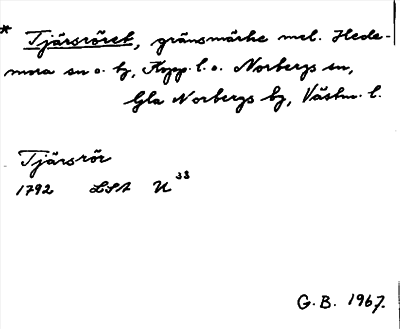 * Tjärsröret, gränsmärke mel. Hede-
mora sn o. by, Kopp. l. o. Norbergs sn,
Gla Norbergs by, Västm. l.
Tjärsrör
1792 LSA U 33
G. B. 1967.